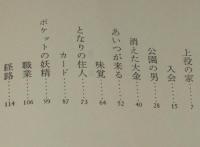 上役の家 7
入会 15
公園の男 28
消えた大金 40
あいつが来る 52
味覚 64
となりの住人 73
カード 87
ポケットの妖精 99
職業 106
経路 114